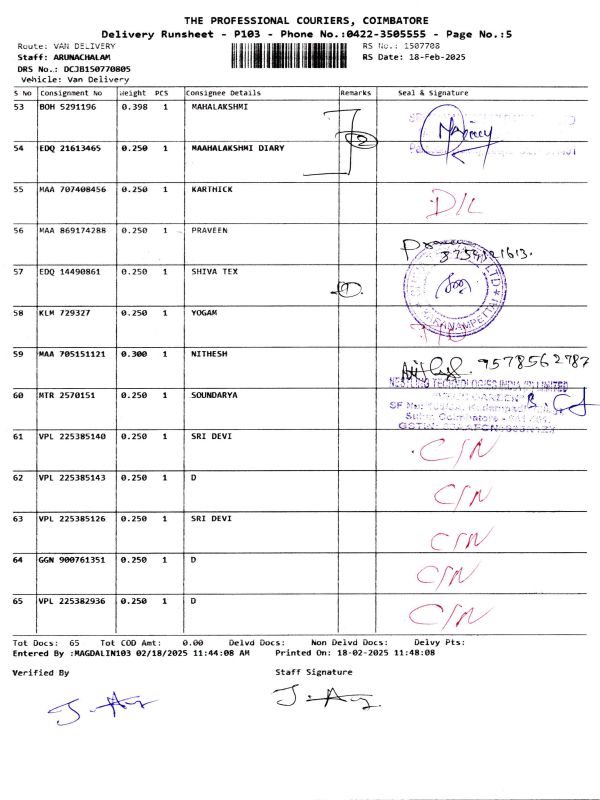 THE PROFESSIONAL COURIERS, COIMBATORE
Delivery Runsheet - P103 - Phone No.:0422-3505555 - Page No.:5
Route: VAN DELIVERY RS No.: 1507708
Staff: ARUNACHALAM RS Date: 18-Feb-2025
DRS No.: DCJB150770805
Vehicle: Van Delivery
S No Consignment No Weight PCS Consignee Details Remarks Seal & Signature
53 BOH 5291196 0.398 1 MAHALAKSHMI
2
54 EDQ 21613465 0.250 1 MAAHALAKSHMI DIARY
55 MAA 707408456 0.250 1 KARTHICK D/L
56 MAA 869174288 0.250 1 PRAVEEN
57 EDQ 14490861 0.250 1 SHIVA TEX
58 KLM 729327 0.250 1 YOGAM
59 MAA 705151121 0.300 1 NITHESH 9578562787
NESTLING TECHNOLOGIES INDIA (P) LIMITED
60 MTR 2570151 0.250 1 SOUNDARYA
61 VPL 225385140 0.250 1 SRI DEVI C/N
62 VPL 225385143 0.250 1 D C/N
63 VPL 225385126 0.250 1 SRI DEVI C/N
64 GGN 900761351 0.250 1 D C/N
65 VPL 225382936 0.250 1 D C/N
Tot Docs: 65 Tot COD Amt: 0.00 Delvd Docs: Non Delvd Docs: Delvy Pts:
Entered By :MAGDALIN103 02/18/2025 11:44:08 AM Printed On: 18-02-2025 11:48:08
Verified By Staff Signature